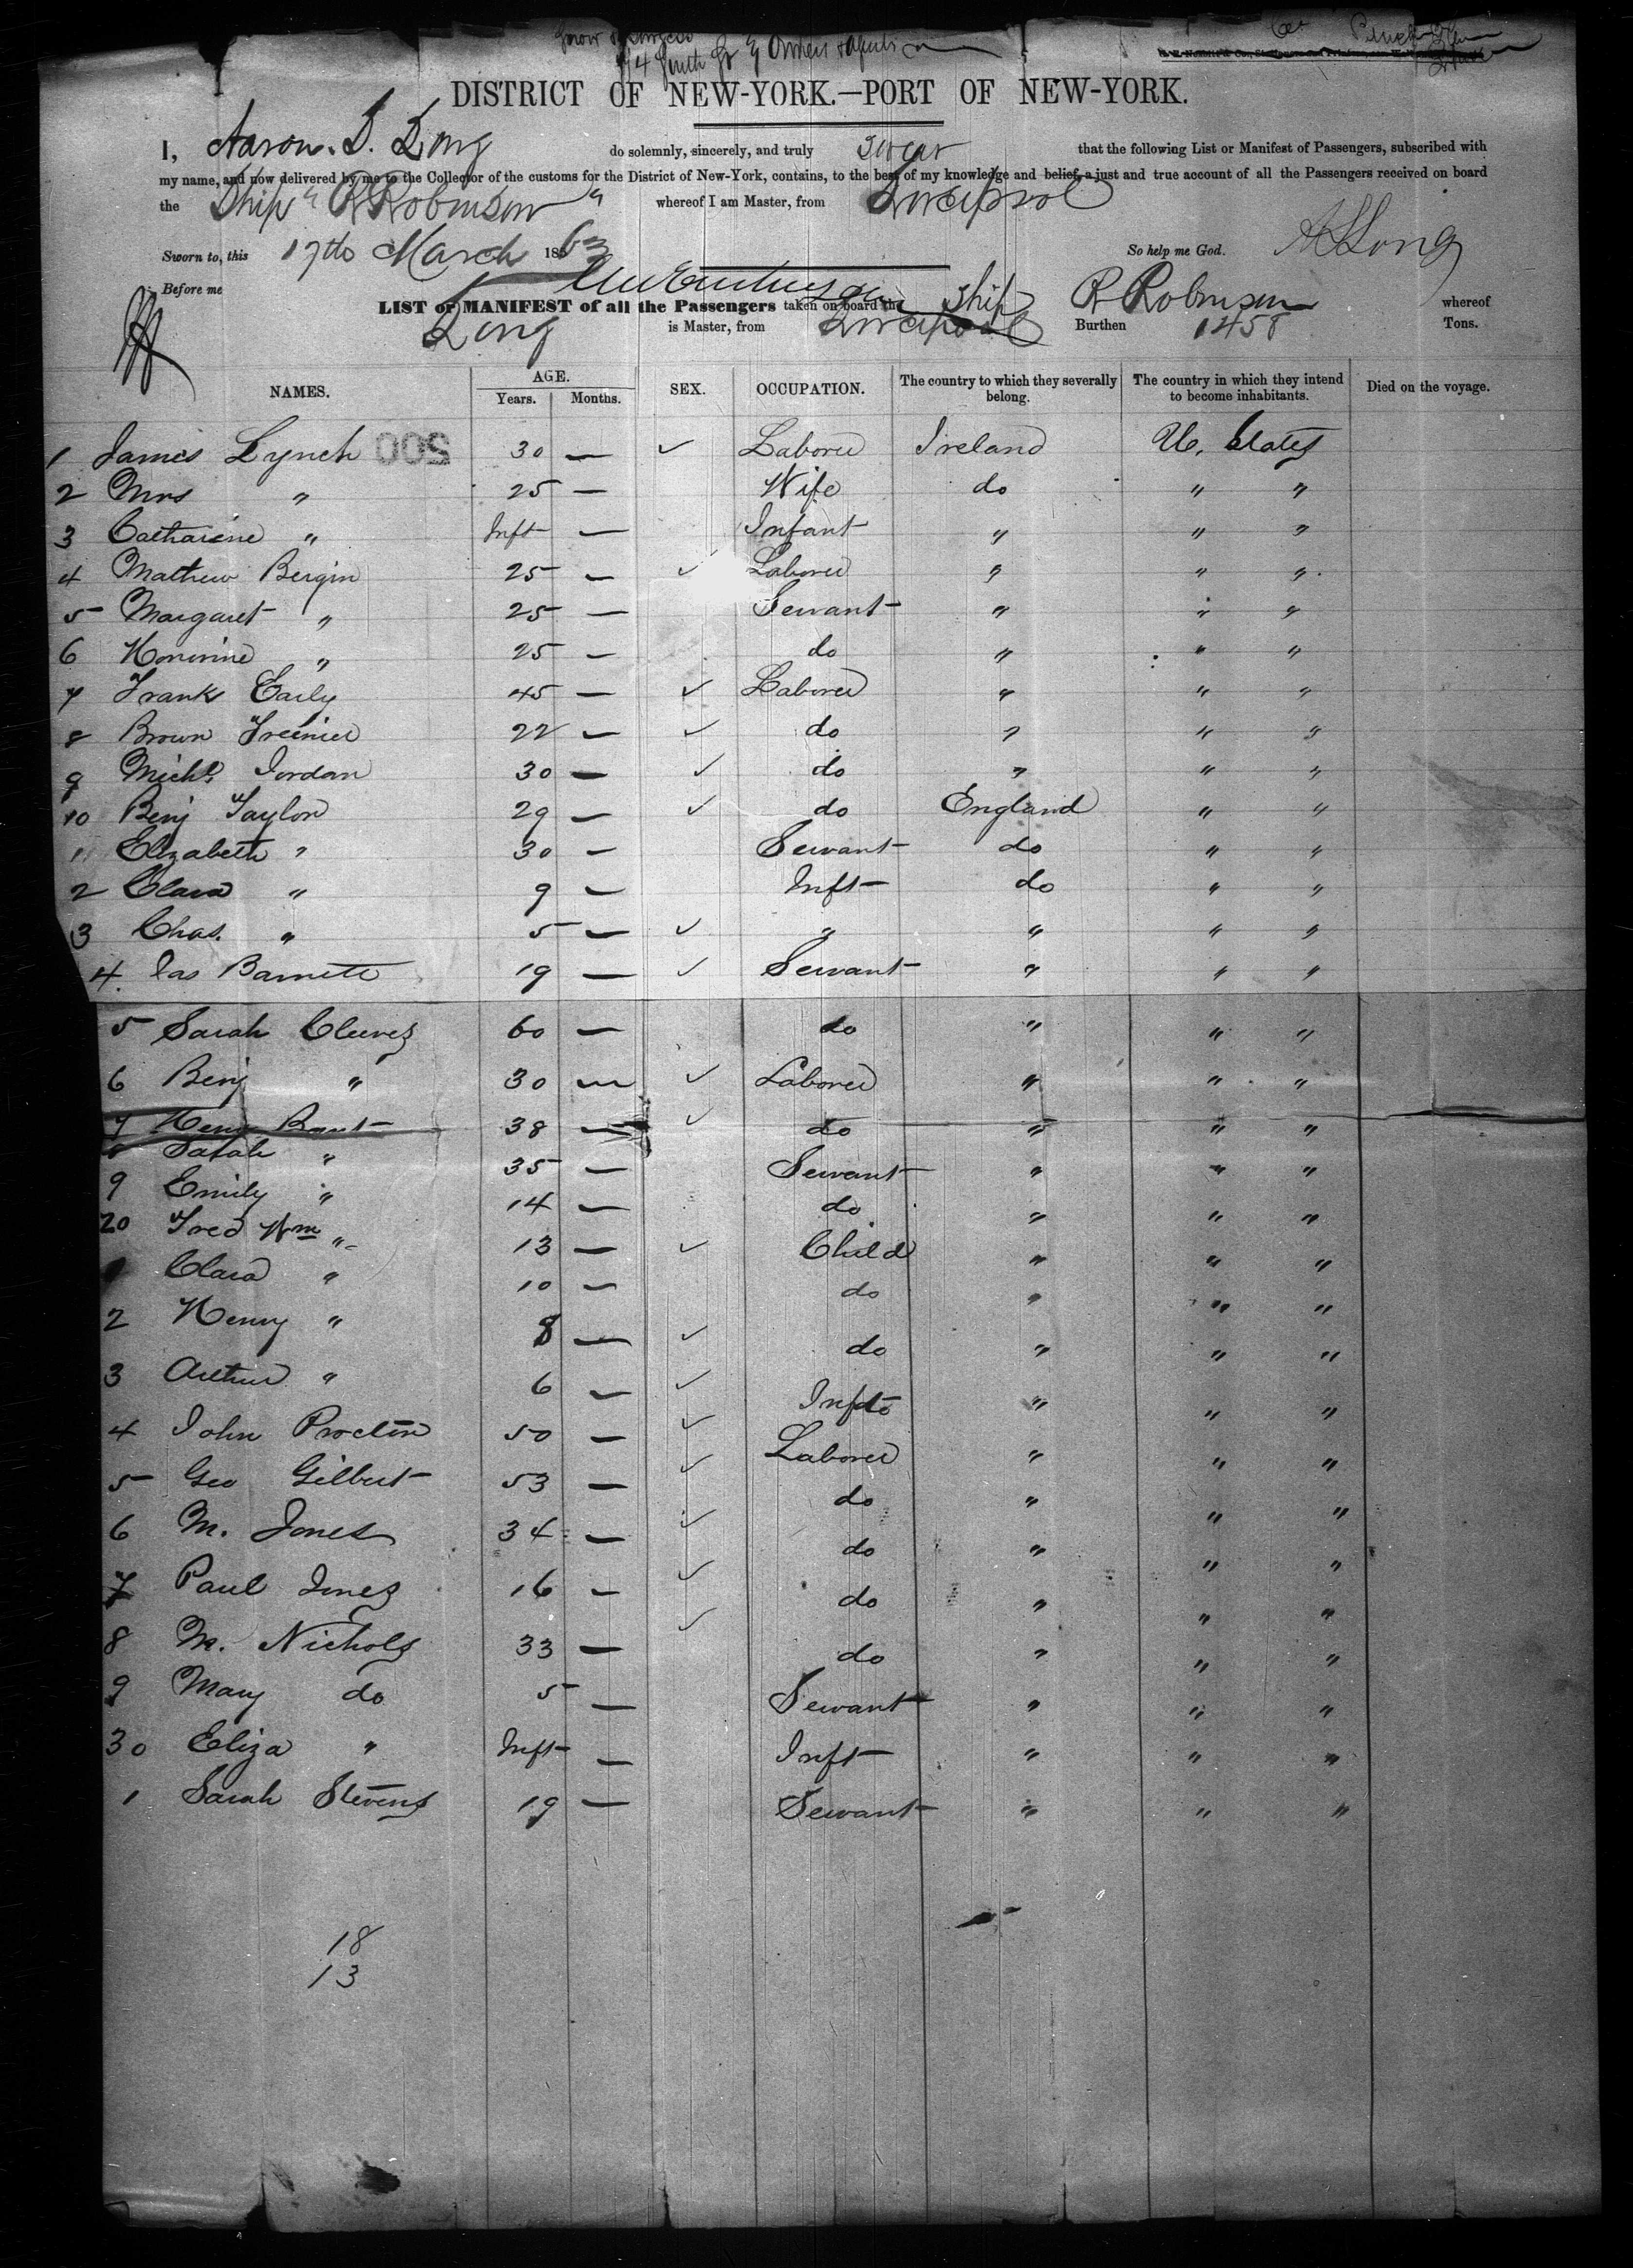 14 South St Owners
DISTRICT OF NEW-YORK.—PORT OF NEW-YORK.
I, Aaron. D. Long do solemnly, sincerely, and truly Swear that the following List or Manifest of Passengers, subscribed with
my name, and now delivered by me to the Collector of the customs for the District of New-York, contains, to the best of my knowledge and belief, a just and true account of all the Passengers received on board
the Ship "R Robinson" whereof I am Master, from Liverpool
Sworn to, this 17th March 1863 So help me God. A D Long
Before me
LIST or MANIFEST of all the Passengers taken on board the Ship R Robinson whereof
Long is Master, from Liverpool Burthen 1458 Tons.
NAMES. AGE. Years. Months. SEX. OCCUPATION. The country to which they severally belong. The country in which they intend to become inhabitants. Died on the voyage.
1 James Lynch 500 30 — ✓ Laborer Ireland U. States
2 Mrs " 25 — Wife do " "
3 Catharine " Inft — Infant " " "
4 Mathew Bergin 25 — ✓ Laborer " " "
5 Margaret " 25 — Servant " " "
6 " 25 — do " " "
7 Frank Early 45 — ✓ Laborer " " "
8 Brown 22 — ✓ do " " "
9 Michl Jordan 30 — ✓ do " " "
10 Benj Taylor 29 — ✓ do England " "
11 Elizabeth " 30 — Servant do " "
2 Clara " 9 — Inft do " "
3 Chas. " 5 — ✓ " " " "
4. Jas Barnett 19 — ✓ Servant " " "
5 Sarah Cleeves 60 — do " " "
6 Benj " 30 — ✓ Laborer " " "
7 Henry Bant 38 — ✓ do " " "
Sarah " 35 — Servant " " "
9 Emily " 14 — do " " "
20 Fred Wm " 13 — ✓ Child " " "
Clara " 10 — do " " "
2 Henry " 8 — ✓ do " " "
3 Arthur " 6 — ✓ Inft " " "
4 John Procter 50 — ✓ Laborer " " "
5 Geo Gilbert 53 — ✓ do " " "
6 M. Jones 34 — ✓ do " " "
7 Paul Jones 16 — ✓ do " " "
8 M. Nichols 33 — ✓ do " " "
9 Mary do 5 — Servant " " "
30 Eliza " Inft — Inft " " "
1 Sarah Stevens 19 — Servant " " "
18
13